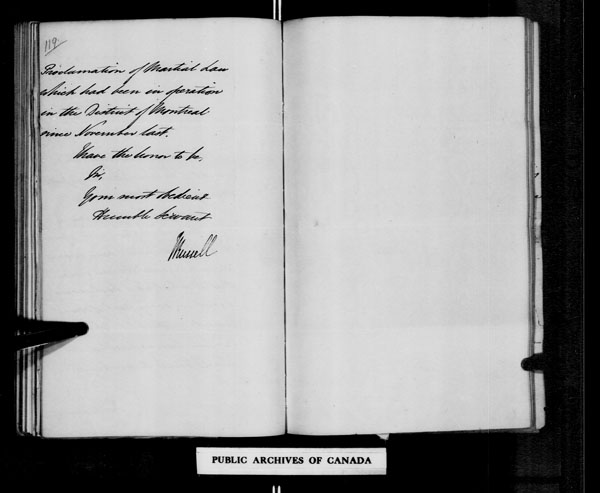 119
Proclamation of Martial Law
which had been in operation
in the District of Montreal
since November last.
I have the honor to be,
Sir,
Your most obedient
Humble Servant
J Russell
PUBLIC ARCHIVES OF CANADA